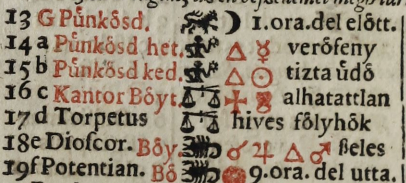 13 G Pünkősd. ☽ 1. ora. del elött.
14 a Pünkősd het. △ ☿ verőfeny
15 b Pünkősd ked. △ ☉ tizta üdő
16 c Kantor Bőyt. alhatattlan
17 d Torpetus hives főlyhők
18 e Dioſcor. Bőy. ☌ ♃ △ ♂ ßeles
19 f Potentian. Bő 9. ora. del utta.